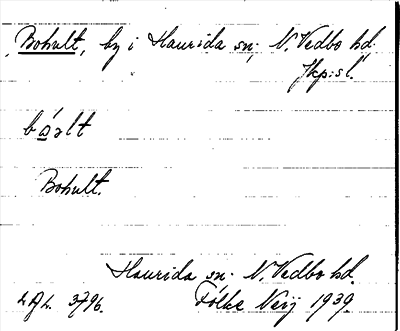 Bohult, by i Haurida sn; N. Vedbo hd.
Jkp:s l.
bóalt
Bohult.
Haurida sn. N. Vedbo hd.
3796. Fólke 1939.